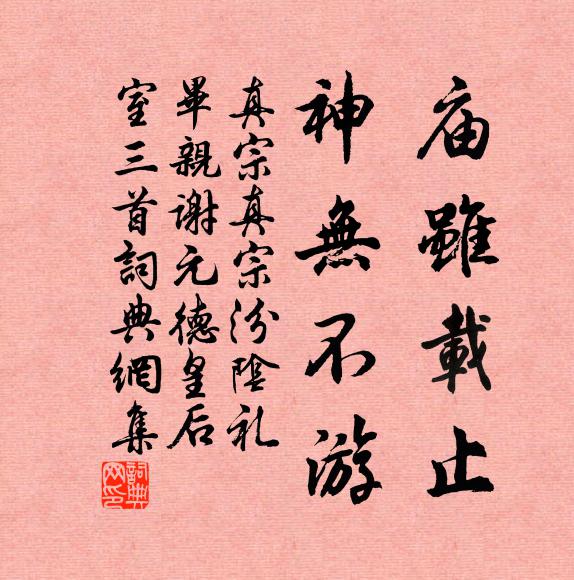 庙雖載止
神無不游
真宗真宗汾陰礼
畢親謝元德皇后
室三首詞典網集
詞典网印